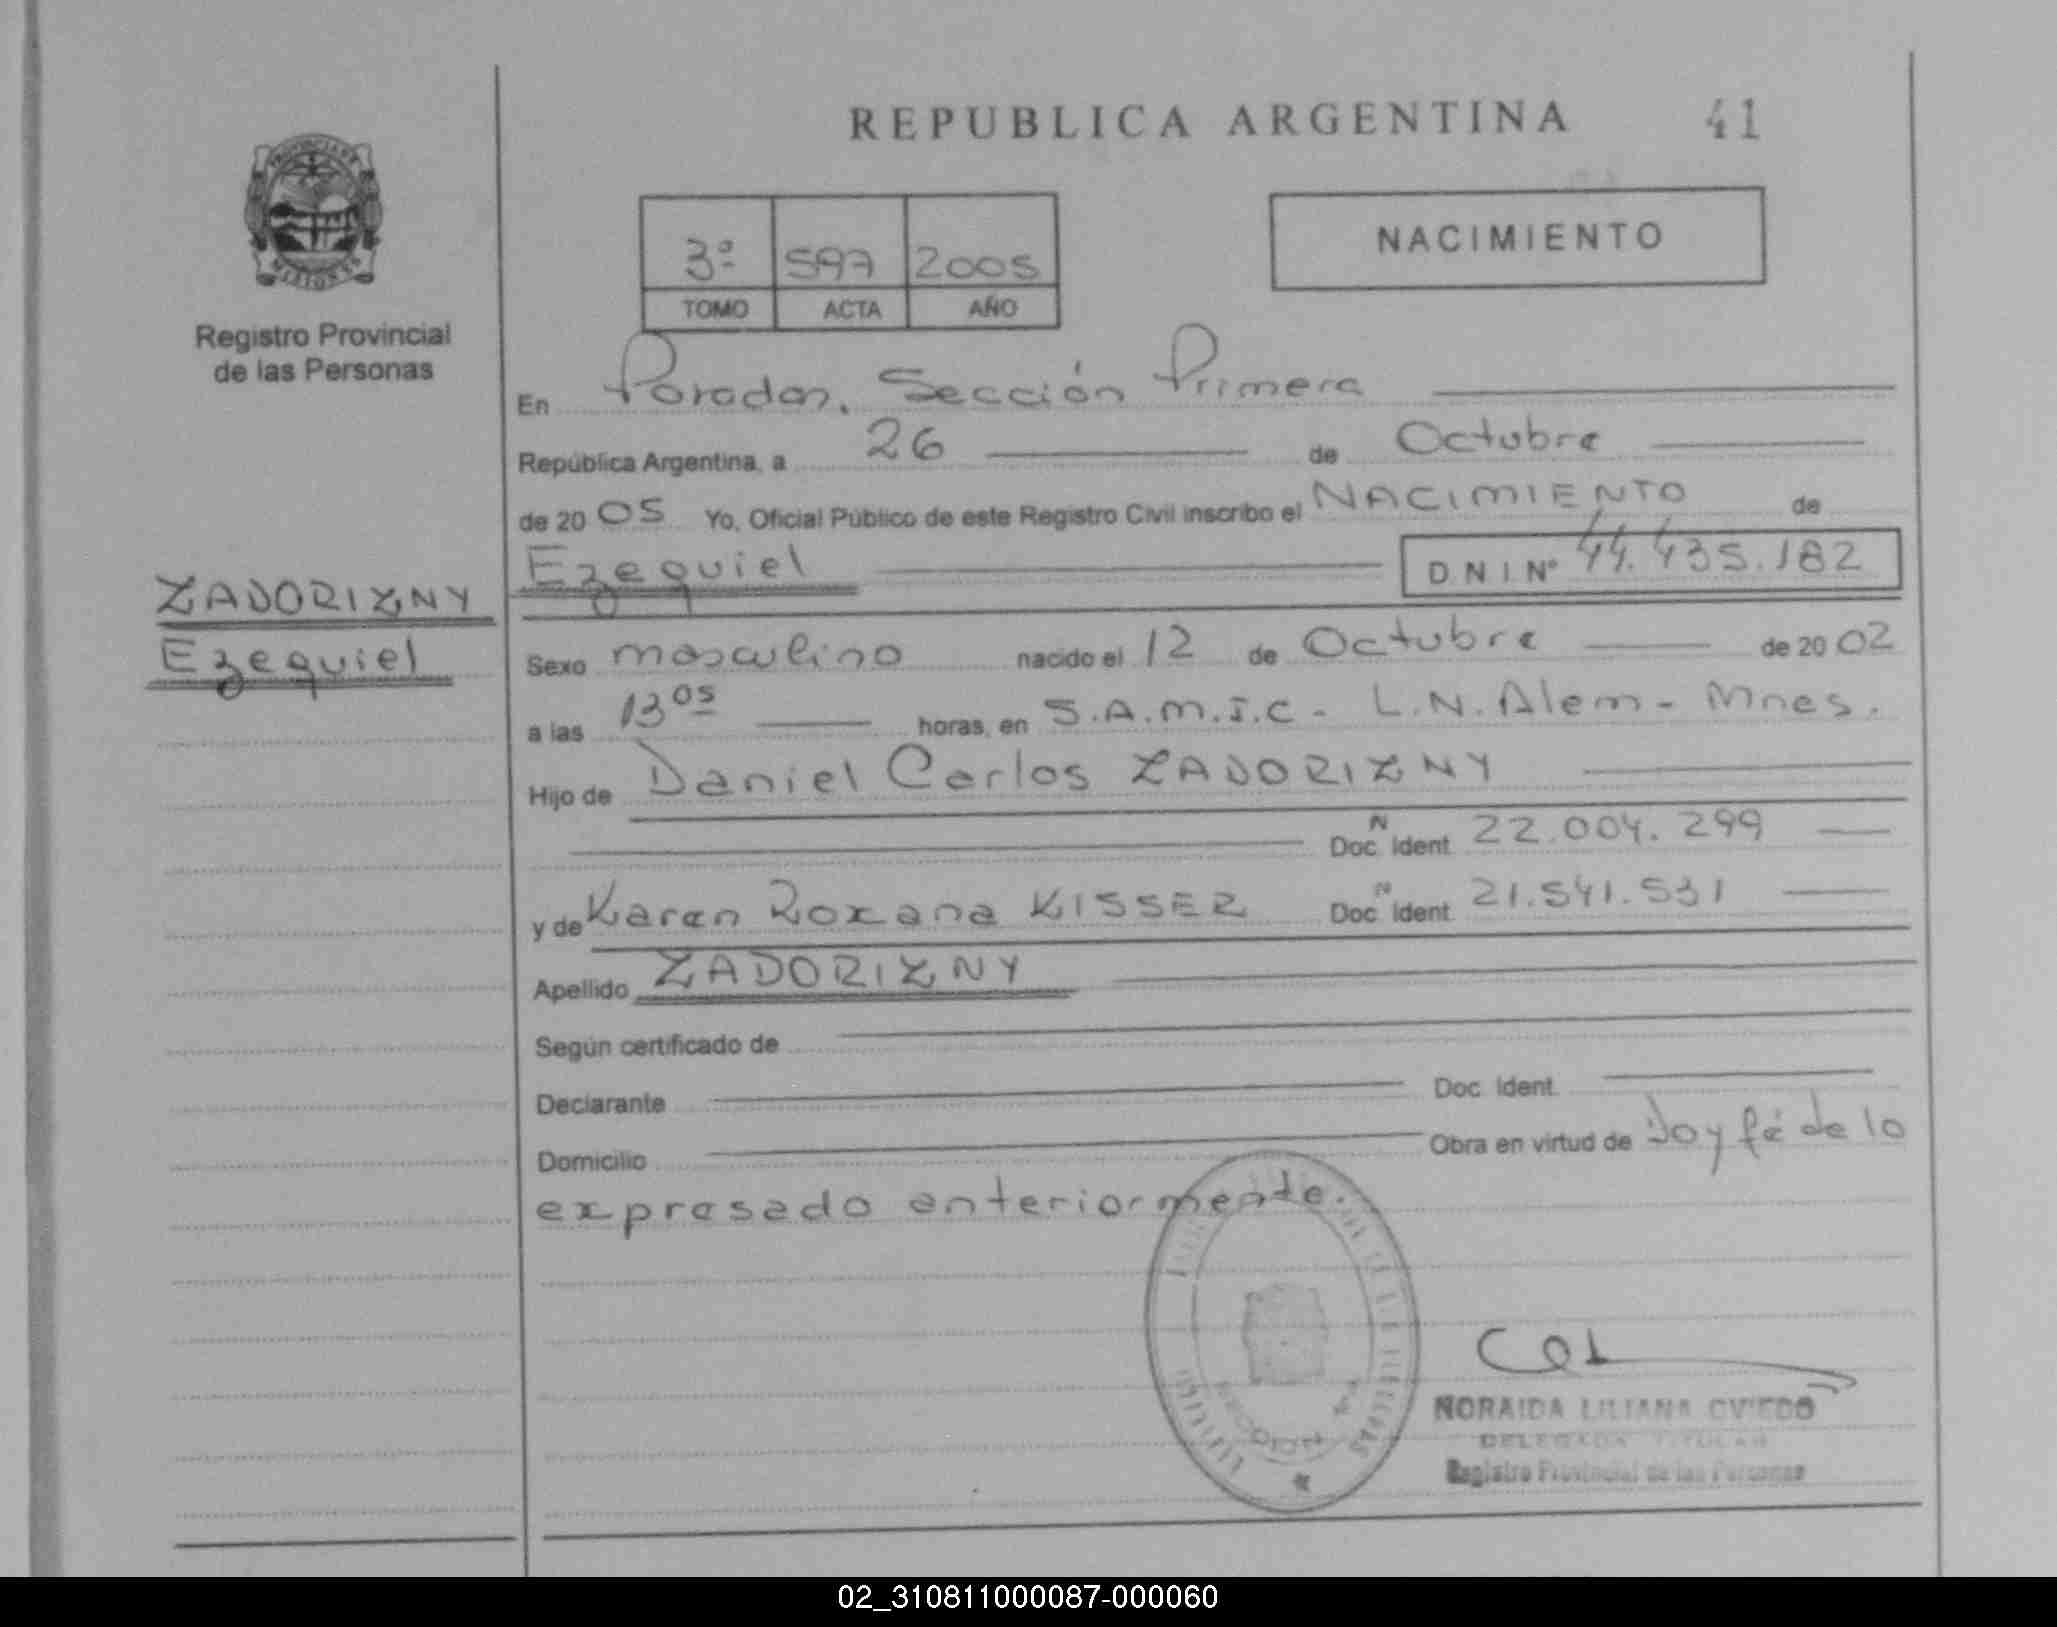 REPUBLICA ARGENTINA 41
PROVINCIA DE MISIONES
Registro Provincial
de las Personas
NACIMIENTO
3º 597 2005
TOMO ACTA AÑO
En Posadas, Sección Primera
República Argentina, a 26 de Octubre
de 20 05 Yo, Oficial Público de este Registro Civil inscribo el NACIMIENTO de
Ezequiel DNI Nº 44.435.182
ZADORIZNY
Ezequiel
Sexo masculino nacido el 12 de Octubre de 20 02
a las 13 05 horas, en S.A.M.I.C. - L.N. Alem - Mnes.
Hijo de Daniel Carlos ZADORIZNY
N
Doc. Ident. 22.004.299
N
y de Karen Roxana KISSER Doc. Ident. 21.541.531
Apellido ZADORIZNY
Según certificado de
Declarante Doc. Ident.
Domicilio Obra en virtud de Doy fé de lo
expresado anteriormente.
NORAIDA LILIANA OVIEDO
DELEGADA TITULAR
Registro Provincial de las Personas
02_310811000087-000060